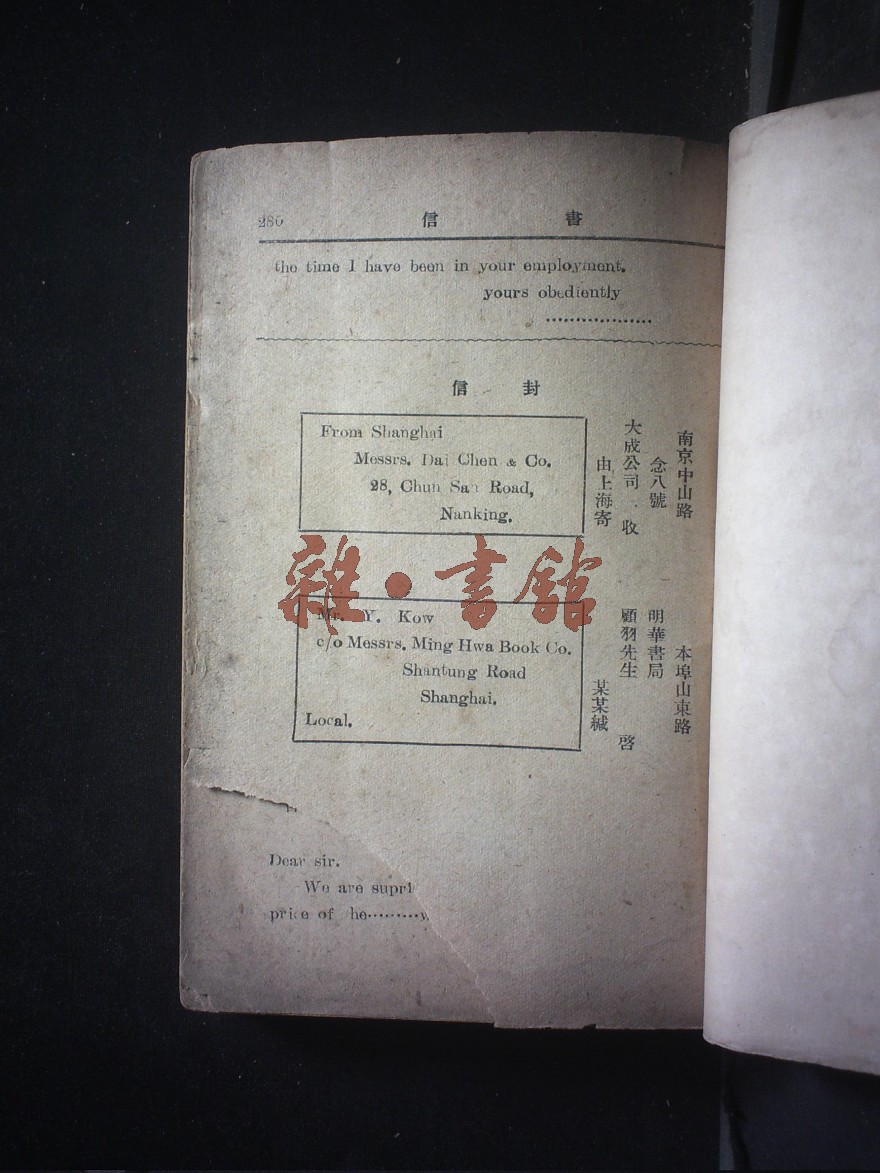 書信
the time I have been in your employment.
yours obediently
..................
封信
From Shanghai
Messrs. Dai Chen & Co.
28, Chun San Road,
Nanking.
南京中山路
念八號
大成公司．收
由上海寄
雜·書館
Mr. Y. Kow
c/o Messrs. Ming Hwa Book Co.
Shantung Road
Shanghai.
Local.
本埠山東路
明華書局
顧羽先生 啓
某某緘
Dear sir.
We are supri
price of he·········